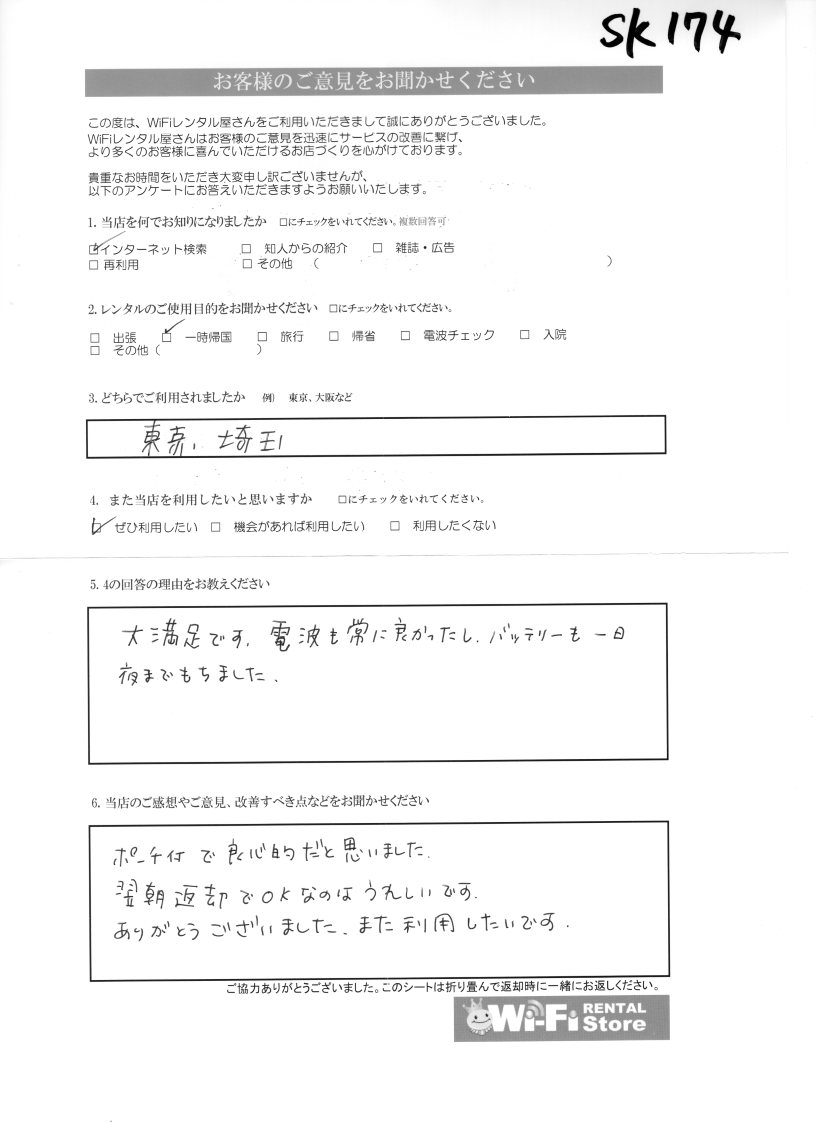 SK174
お客様のご意見をお聞かせください
この度は、WiFiレンタル屋さんをご利用いただきまして誠にありがとうございました。
WiFiレンタル屋さんはお客様のご意見を迅速にサービスの改善に繋げ、
より多くのお客様に喜んでいただけるお店づくりを心がけております。
貴重なお時間をいただき大変申し訳ございませんが、
以下のアンケートにお答えいただきますようお願いいたします。
1. 当店を何でお知りになりましたか □にチェックをいれてください。複数回答可
☑インターネット検索 □ 知人からの紹介 □ 雑誌・広告
□ 再利用 □ その他 ( )
2. レンタルのご使用目的をお聞かせください □にチェックをいれてください。
□ 出張 ☑ 一時帰国 □ 旅行 □ 帰省 □ 電波チェック □ 入院
□ その他 ( )
3. どちらでご利用されましたか 例) 東京、大阪など
東京、埼玉
4. また当店を利用したいと思いますか □にチェックをいれてください。
☑ ぜひ利用したい □ 機会があれば利用したい □ 利用したくない
5. 4の回答の理由をお教えください
大満足です。電波も常に良かったし、バッテリーも一日
夜までもちました。
6. 当店のご感想やご意見、改善すべき点などをお聞かせください
ポーチ付で良心的だと思いました。
翌朝返却でOKなのはうれしいです。
ありがとうございました。また利用したいです。
ご協力ありがとうございました。このシートは折り畳んで返却時に一緒にお返しください。
Wi-Fi RENTAL Store